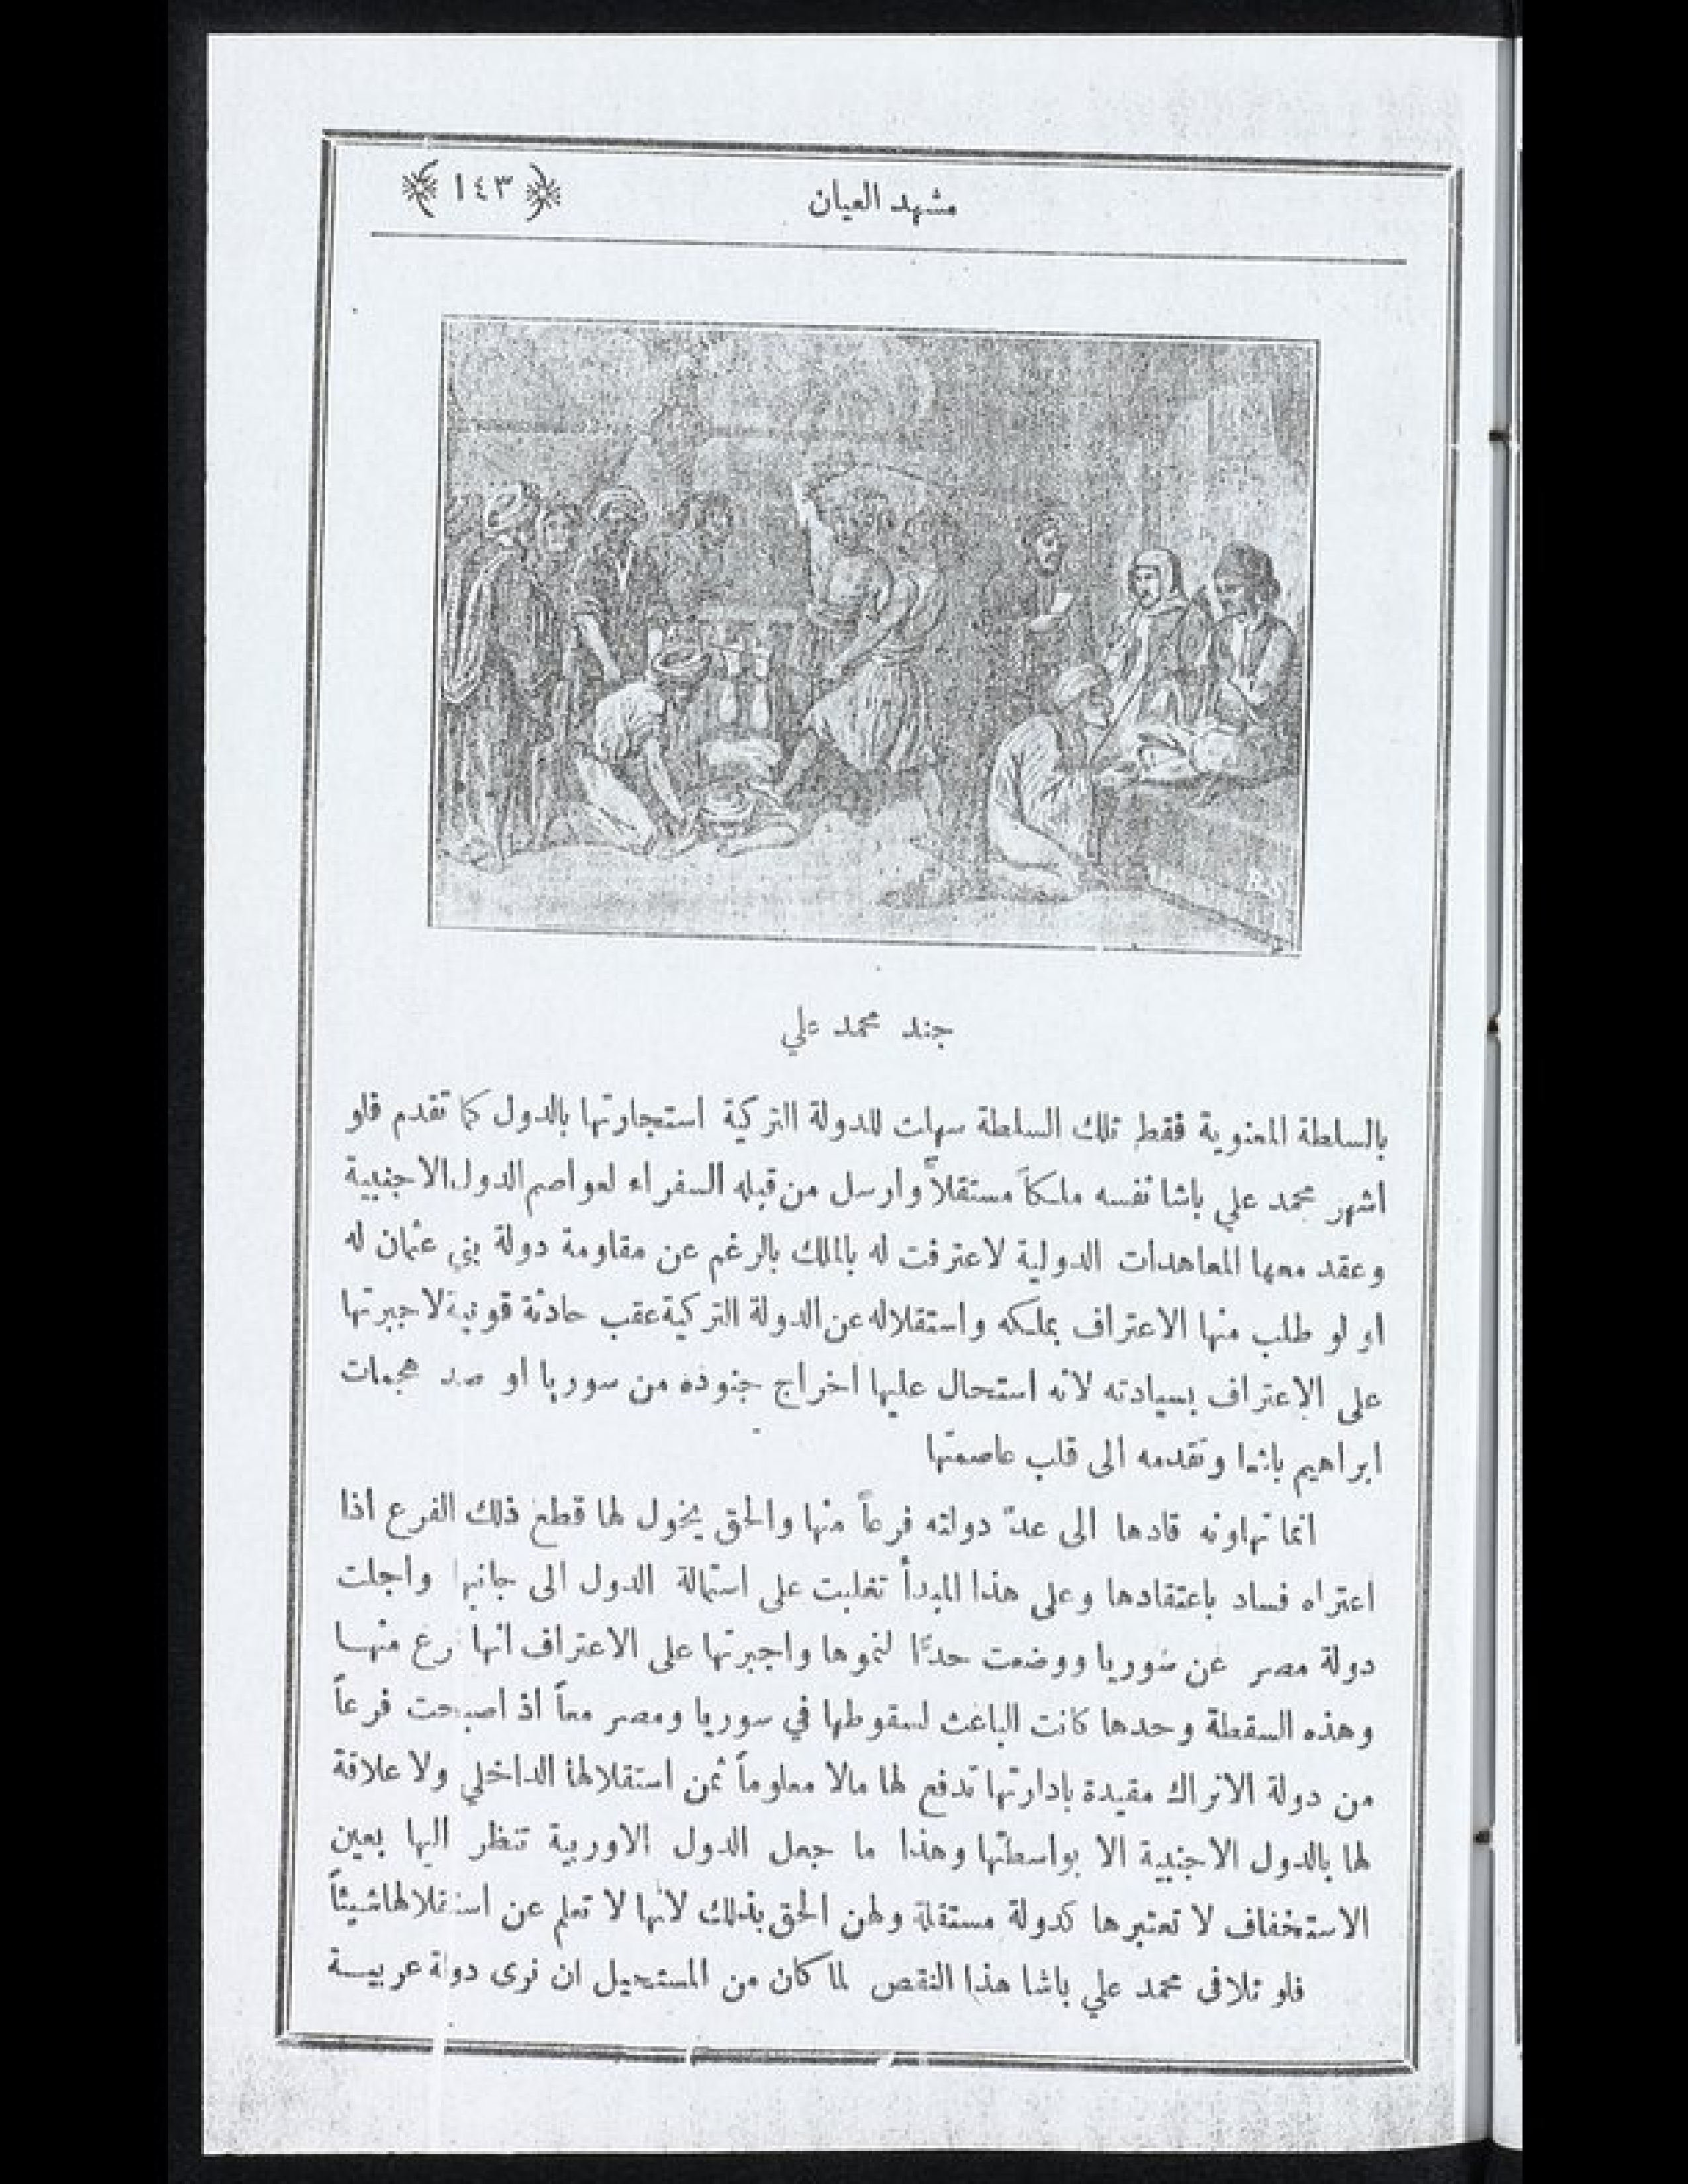 مشهد العيان ﴿ ١٤٣ ﴾
جند محمد علي
بالسلطة المعنوية فقط تلك السلطة سهلت للدولة التركية استجارتها بالدول كما تقدم فلو
اشهر محمد علي باشا نفسه ملكاً مستقلاً وارسل من قبله السفراء لعواصم الدول الاجنبية
وعقد معها المعاهدات الدولية لاعترفت له بالملك بالرغم عن مقاومة دولة بني عثمان له
او لو طلب منها الاعتراف بملكه واستقلاله عن الدولة التركية عقب حادثة قونية لاجبرتها
على الاعتراف بسيادته لانه استحال عليها اخراج جنوده من سوريا او صد هجمات
ابراهيم باشا وتقدمه الى قلب عاصمتها
انما تهاونه قادها الى عدّ دولته فرعاً منها والحق يخول لها قطع ذلك الفرع اذا
اعتراه فساد باعتقادها وعلى هذا المبدأ تغلبت على استمالة الدول الى جانبها واجلت
دولة مصر عن سوريا ووضعت حدًّا لنموها واجبرتها على الاعتراف انها فرع منها
وهذه السقطة وحدها كانت الباعث لسقوطها في سوريا ومصر معاً اذ اصبحت فرعاً
من دولة الاتراك مقيدة بادارتها تدفع لها مالا معلوماً ثمن استقلالها الداخلي ولا علاقة
لها بالدول الاجنبية الا بواسطتها وهذا ما جعل الدول الاوربية تنظر اليها بعين
الاستخفاف لا تعتبرها كدولة مستقلة ولهن الحق بذلك لانها لا تعلم عن استقلالها شيئاً
فلو تلافى محمد علي باشا هذا النقص لما كان من المستحيل ان نرى دولة عربيـــة